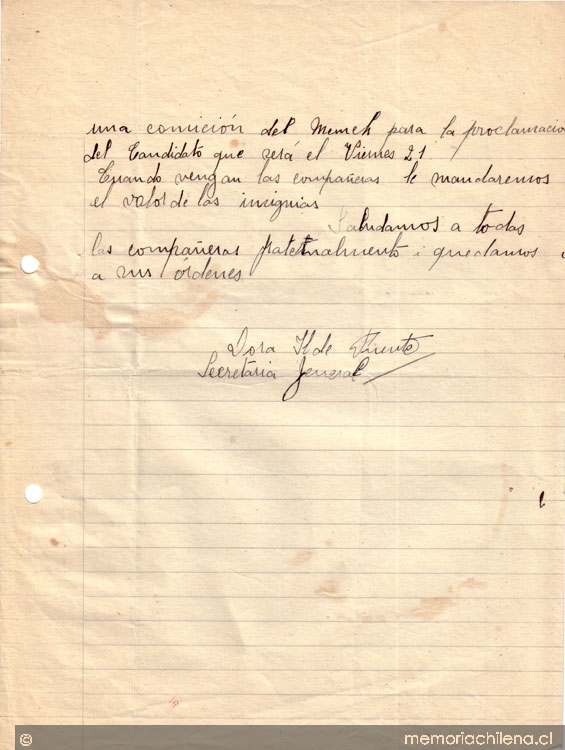 una comición del Memch para la proclamacio
del Candidato que será el Viernes 21
Cuando vengan las compañeras le mandaremos
el valor de las insignias
Saludamos a todas
las compañeras fraternalmente i quedamos
a sus órdenes
Dora K de Fuente
Secretaria Jeneral
© memoriachilena.cl